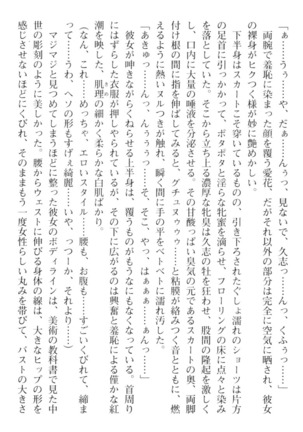 「あぅ……うぅ……や、だぁ……んぅっ、見ないで、久志っ……んっ、くふぅっ……」
両腕で羞恥に染まった顔を覆う愛花。だがそれ以外の部分は完全に空気に晒され、彼女
の裸身がヒクつく様が妙に艶めかしい。
下半身はスカートこそ穿いているものの、引き下ろされたぐしょ濡れのショーツは片方
の足首に引っかかって、ポタポタと淫らな牝蜜を滴らせ、フローリングの床に点々と染み
を落としていた。そこから立ち上る濃厚な牝臭は久志の牡を狂わせ、股間の隆起を激しく
し、口内に大量の唾液を分泌させる。その甘酸っぱい臭気の元であるスカートの奥、両脚
付け根の間に指を伸ばしてみると、グチュヌゥゥゥ――と粘膜が絡みつく音とともに、燃
えるように熱いヌルつきが触れ、瞬く間に手の平をベトベトに濡れ汚した。
「あきゅっ……んっ、んぅぅぅっ……そ、そこ、やっ、はぁぁぁ、ぁんっ……」
彼女が呻きながらくねらせる上半身は、覆うものがもうなにもなくなっている。首周り
にはずらした衣服が押しやられているが、その下に広がるのは興奮と羞恥による僅かな紅
潮を映した、肌理の細かく柔らかな白肌ばかり。
（なん、これ……めっちゃ、エロいスタイル……腰も、お腹も……すごいくびれて、締ま
って……うわ、ヘソの形もすげぇ綺麗……いや、つーか、それより……）
マジマジと見つめてしまうほどに整った彼女のボディラインは、美術の教科書で見た中
世の彫刻のように美しかった。腰からウェストに伸びる身体の線は、大きなヒップの形を
感じさせないほどにくびれ、そのままもう一度女性らしい丸みを帯びて、バストの大きさ